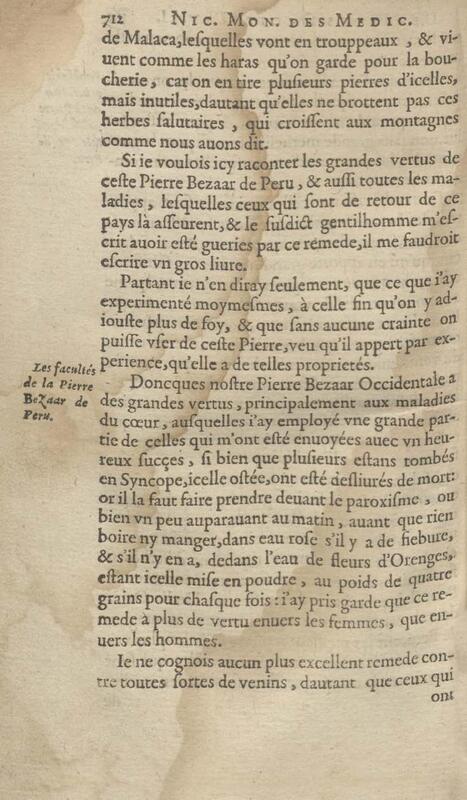 712 NIC. MON. DES MEDIC.
de Malaca,leſquelles vont en trouppeaux , & vi-
uent comme les haras qu'on garde pour la bou-
cherie, car on en tire pluſieurs pierres d'icelles,
mais inutiles,dautant qu'elles ne brottent pas ces
herbes ſalutaires , qui croiſſent aux montagnes
comme nous auons dit.
Si ie voulois icy raconter les grandes vertus de
ceſte Pierre Bezaar de Peru , & auſſi toutes les ma-
ladies , leſquelles ceux qui ſont de retour de ce
pays là aſſeurent,& le ſuſdict gentilhomme m'eſ-
crit auoir eſté gueries par ce remede,il me faudroit
eſcrire vn gros liure.
Partant ie n'en diray ſeulement, que ce que i'ay
experimenté moymeſmes , à celle fin qu'on y ad-
iouſte plus de foy, & que ſans aucune crainte on
puiſſe vſer de ceſte Pierre,veu qu'il appert par ex-
perience,qu'elle a de telles proprietés.
Les facultés
de la Pierre
Bezaar de
Peru.
Doncques noſtre Pierre Bezaar Occidentale a
des grandes vertus , principalement aux maladies
du cœur, auſquelles i'ay employé vne grande par-
tie de celles qui m'ont eſté enuoyées auec vn heu-
reux ſucçes , ſi bien que pluſieurs eſtans tombés
en Syncope,icelle oſtée,ont eſté deſliurés de mort:
or il la faut faire prendre deuant le paroxiſme , ou
bien vn peu auparauant au matin , auant que rien
boire ny manger,dans eau roſe s'il y a de fiebure,
& s'il n'y en a, dedans l'eau de fleurs d'Orenges,
eſtant icelle miſe en poudre , au poids de quatre
grains pour chaſque fois : i'ay pris garde que ce re-
mede à plus de vertu enuers les femmes , que en-
uers les hommes.
Ie ne cognois aucun plus excellent remede con-
tre toutes ſortes de venins , dautant que ceux qui
ont